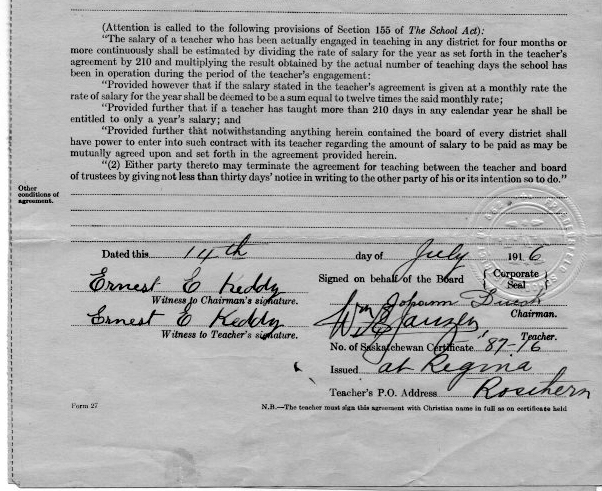 (Attention is called to the following provisions of Section 155 of The School Act):
"The salary of a teacher who has been actually engaged in teaching in any district for four months or
more continuously shall be estimated by dividing the rate of salary for the year as set forth in the teacher's
agreement by 210 and multiplying the result obtained by the actual number of teaching days the school has
been in operation during the period of the teacher's engagement:
"Provided however that if the salary stated in the teacher's agreement is given at a monthly rate the
rate of salary for the year shall be deemed to be a sum equal to twelve times the said monthly rate;
"Provided further that if a teacher has taught more than 210 days in any calendar year he shall be
entitled to only a year's salary; and
"Provided further that notwithstanding anything herein contained the board of every district shall
have power to enter into such contract with its teacher regarding the amount of salary to be paid as may be
mutually agreed upon and set forth in the agreement provided herein.
"(2) Either party thereto may terminate the agreement for teaching between the teacher and board
of trustees by giving not less than thirty days' notice in writing to the other party of his or its intention so to do."
Other
conditions of
agreement.
Dated this 14th day of July 1916
Signed on behalf of the Board
Corporate
Seal
Ernest E Keddy
Witness to Chairman's signature.
Chairman.
Ernest E Keddy
Witness to Teacher's signature.
Wm E Janzen
Teacher.
No. of Saskatchewan Certificate '87-16
Issued at Regina
Teacher's P.O. Address Rosthern
Form 27
N.B.—The teacher must sign this agreement with Christian name in full as on certificate held